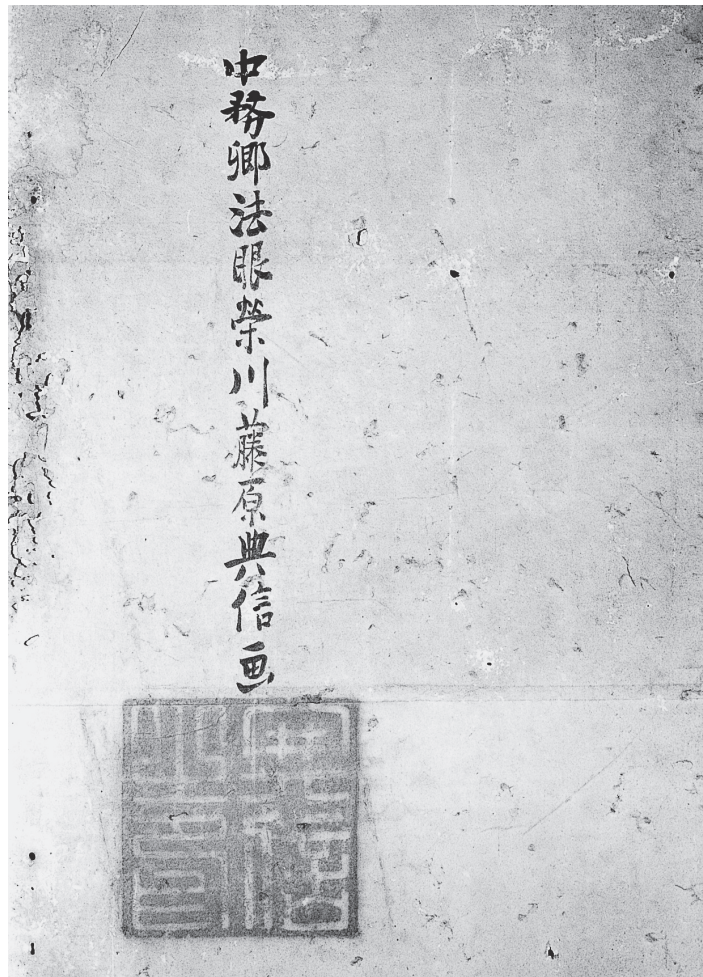 中務卿法眼榮川藤原典信画